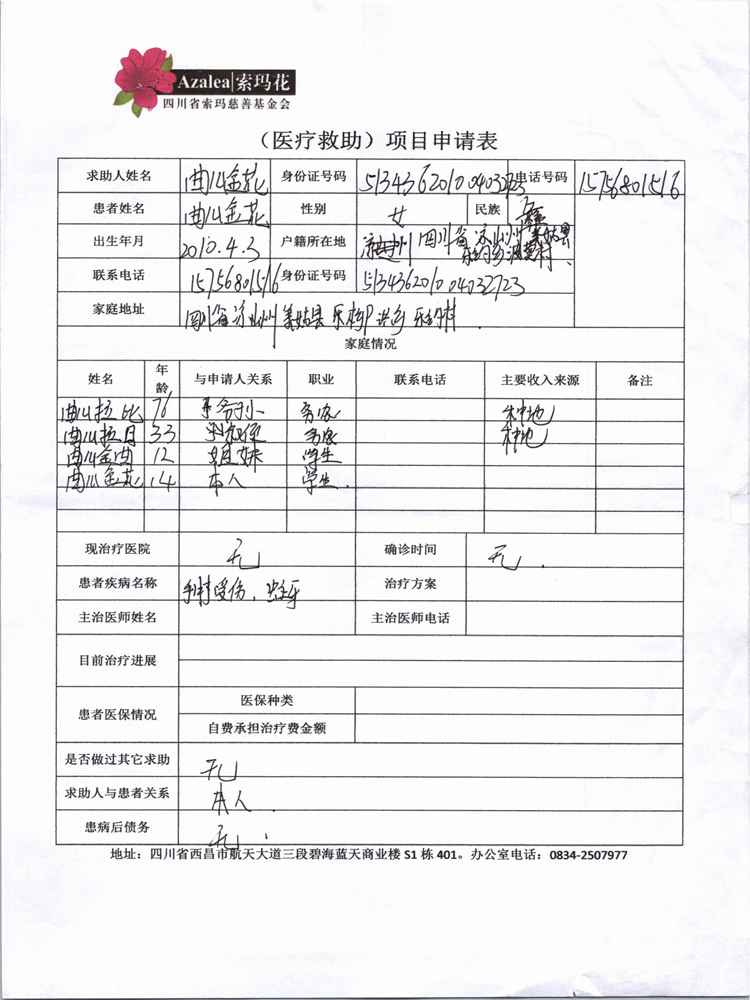 Azalea|索玛花
四川省索玛慈善基金会
（医疗救助）项目申请表
求助人姓名 曲儿金花 身份证号码 513436201004032723 电话号码 15756801516
患者姓名 曲儿金花 性别 女 民族
出生年月 2010.4.3 户籍所在地 四川省凉山州美姑县
联系电话 15756801516 身份证号码 513436201004032723
家庭地址 四川省凉山州美姑县
家庭情况
姓名 年龄 与申请人关系 职业 联系电话 主要收入来源 备注
曲儿拉比 76 务农 种地
曲儿拉日 33 务农 种地
曲儿金曲 12 姐妹 学生
曲儿金花 14 本人 学生.
现治疗医院 无 确诊时间 无.
患者疾病名称 手肘受伤、蛀牙 治疗方案
主治医师姓名 主治医师电话
目前治疗进展
患者医保情况 医保种类
自费承担治疗费金额
是否做过其它求助 无
求助人与患者关系 本人.
患病后债务 无.
地址：四川省西昌市航天大道三段碧海蓝天商业楼 S1 栋 401。办公室电话：0834-2507977